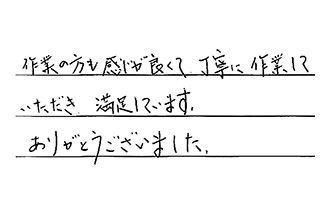 作業の方も感じが良くて、丁寧に作業して
いただき、満足しています。
ありがとうございました。